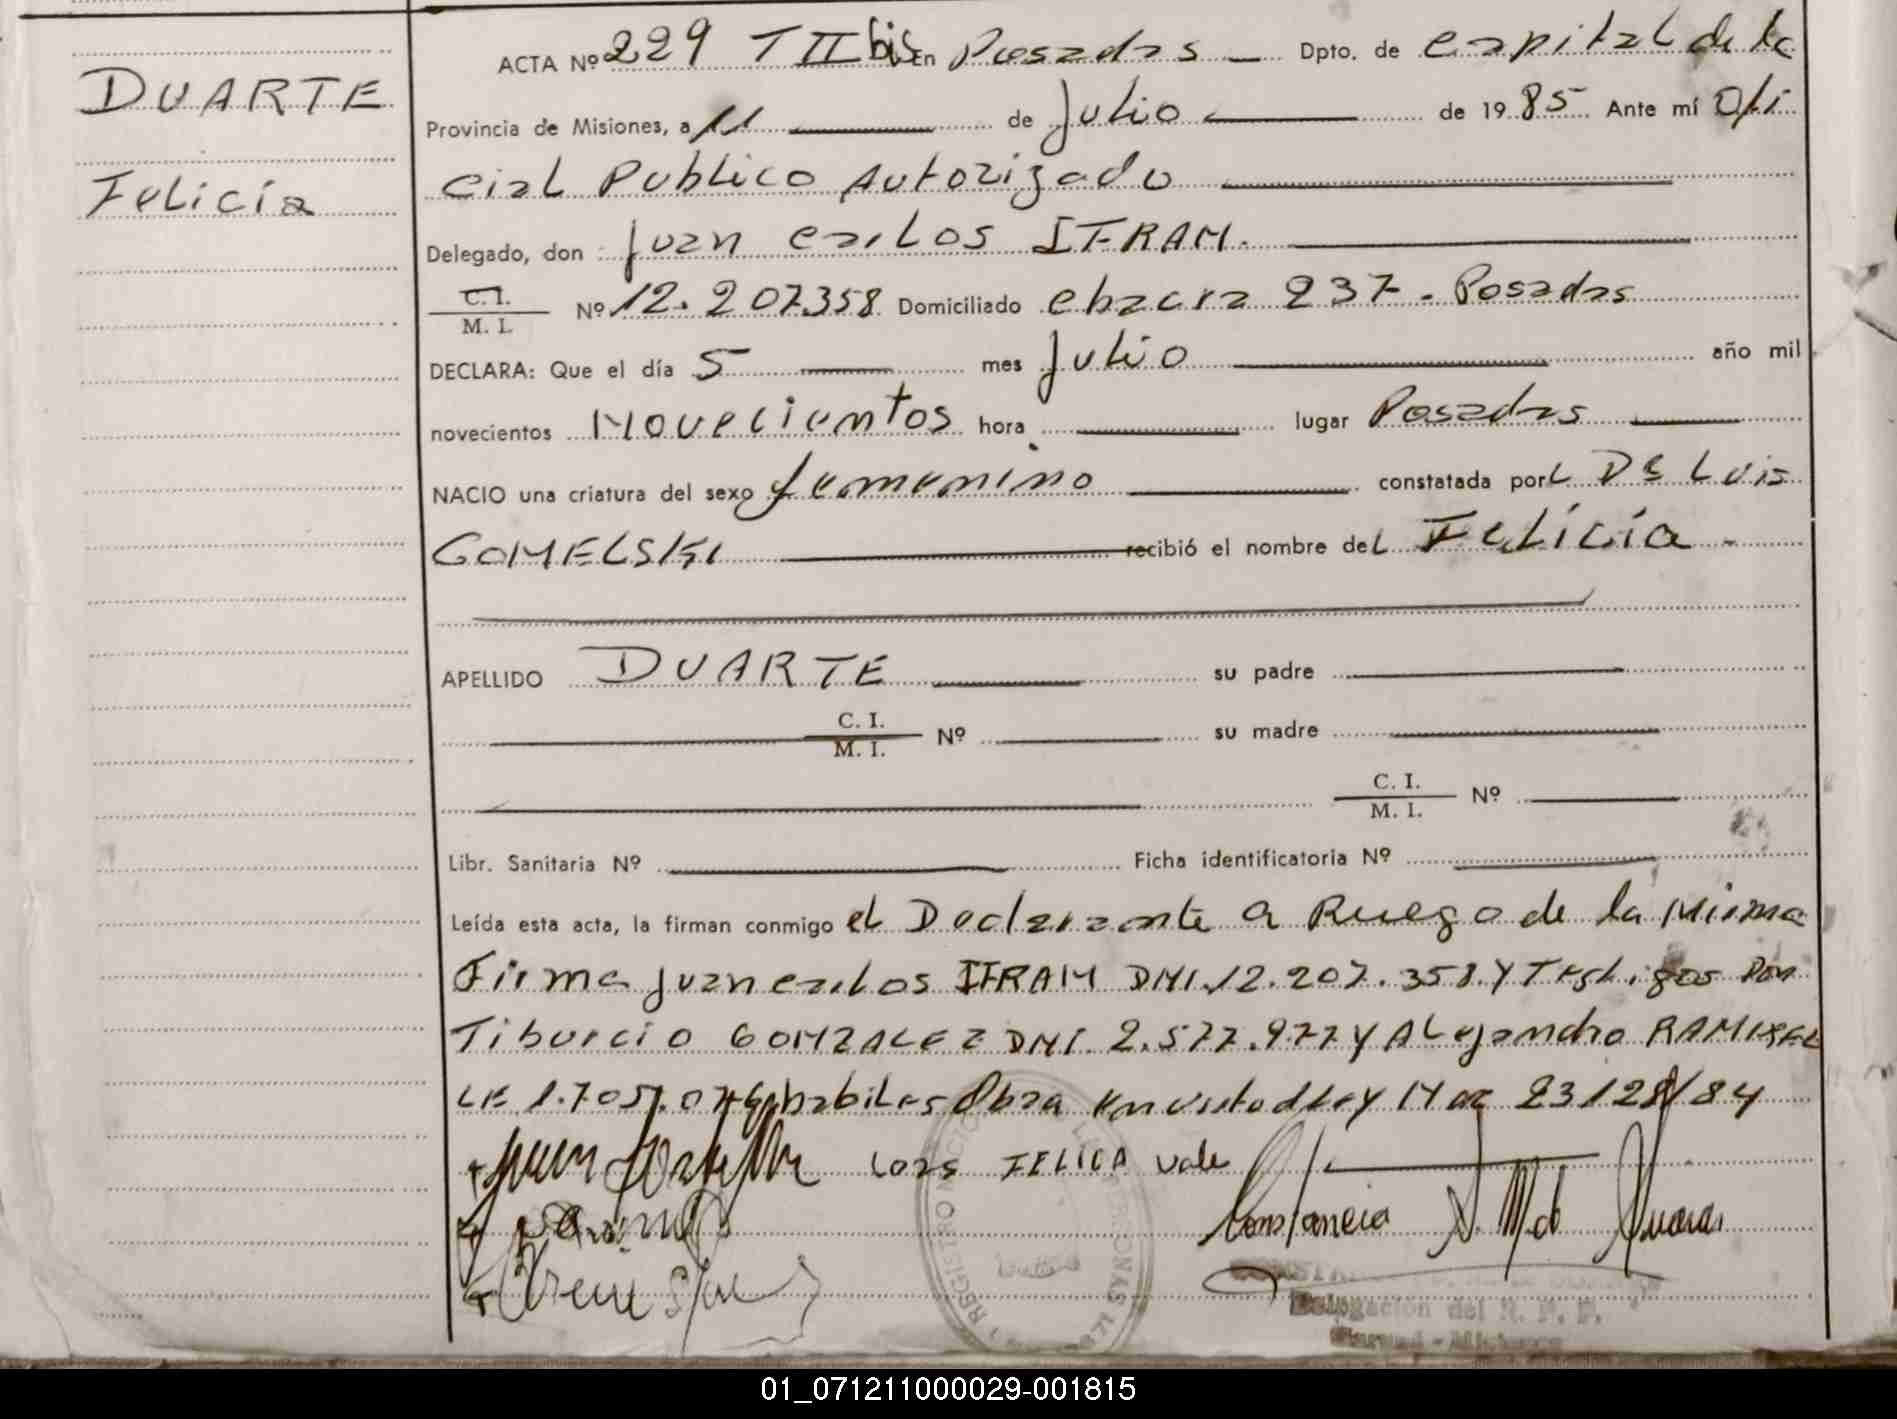 DUARTE
Felicia
ACTA Nº 229 T II bis En Posadas Dpto. de capital de la
Provincia de Misiones, a 11 de Julio de 1985 Ante mí Ofi
cial Publico Autorizado
Delegado, don Juan carlos IFRAM.
C.I. / M. I. Nº 12.207.358 Domiciliado chacra 237 - Posadas
DECLARA: Que el día 5 mes Julio año mil
novecientos Novecientos hora lugar Posadas
NACIO una criatura del sexo femenino constatada por L Dr Luis
GOMELSKI recibió el nombre deL Felicia
APELLIDO DUARTE su padre
C. I. / M. I. Nº su madre
C. I. / M. I. Nº
Libr. Sanitaria Nº Ficha identificatoria Nº
Leída esta acta, la firman conmigo el Declarante a Ruego de la Misma
Firma Juan carlos IFRAM DNI. 12.207.358. Y Testigos Don
Tiburcio GONZALEZ DNI. 2.577.977 Y Alejandro RAMIREZ
LE 1.705.07 habiles Obra en Ley Nº 23128/84
FELICIA vale
Constancia
REGISTRO
Delegación del R. P. P.
01_071211000029-001815